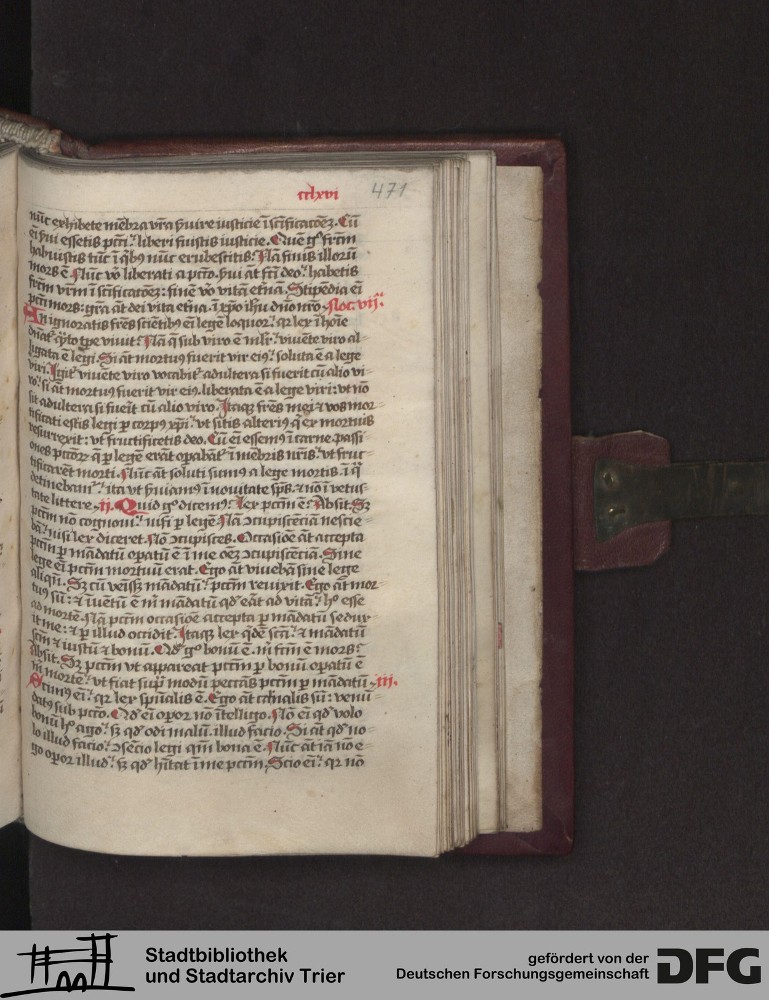 cclxvi 471
nūc exhibete mēbra vr̄a ẜuire iusticie ī scificatōeꝫ. Cū
eī ẜui essetis pcti. liberi fuistis iusticie. Quē gͦ frcm̄
habuistis tūc ī qbꝰ nūc erubescitis. Nā finis illorū
mors ē. Nūc vo liberati a pcto. ẜui āt fcī deo. habetis
frcm̄ vrm̄ ī scificatōeꝫ: finē vo vitā etnā. Stipēdia eī
pcti mors: gra āt dei vita etna. ī xpo ihu dno nro. Noc. vij.
An ignoratis frēs sciētibꝰ ei legē loquor. qr lex ī hoīe
dnat qto tpe viuit. Nā q̄ sub viro ē mlr. viuēte viro al-
ligata ē legi. Si āt mortuꝰ fuerit vir eiꝰ. soluta ē a lege
viri. Igit viuēte viro vocabit adultera si fuerit cū alio vi-
ro. si āt mortuꝰ fuerit vir eiꝰ. liberata ē a lege viri: vt nō
sit adultera si fuerit cū alio viro. Itaqꝫ frēs mei ⁊ vos mor-
tificati estis legi p corpꝰ xpi. vt sitis alteriꝰ q̄ ex mortuis
resurrexit: vt fructificetis deo. Cū ei essemꝰ ī carne passi-
ones pctoꝝ q̄ p legē erāt opabāt ī mēbris nris. vt fruc-
tificarēt morti. Nūc āt soluti sumꝰ a lege mortis ī q̄
detinebam. ita vt ẜuiamꝰ ī nouitate sps. ⁊ nō ī vetus-
tate littere. ij. Quid gͦ dicemꝰ. lex pctm ē. Absit. Sꝫ
pctm nō cognoui. nisi p legē. Nā ↄcupiscētiā nescie-
bā. nisi lex diceret. Nō ↄcupisces. Occasiōe āt accepta
pctm p mādatū opatū ē ī me oēꝫ ↄcupiscētiā. Sine
lege ei pctm mortuū erat. Ego āt viuebā sine lege
aliqn. Sꝫ cū veissꝫ mādatū. pctm reuixit. Ego āt mor-
tuꝰ sū: ⁊ iuētū ē m mādatū qd erat ad vitā. hͦ esse
ad mortē. Nā pctm occasiōe accepta p mādatū sedux-
it me: ⁊ p illud occidit. Itaqꝫ lex qdē scā. ⁊ mādatū
scm ⁊ iustū ⁊ bonū. Qd gͦ bonū ē. m fcm ē mors.
Absit. Sꝫ pctm vt appareat pctm p bonū opatū ē
m mortē. vt fiat supͣ modū peccās pctm p mādatū. iij.
Scimꝰ ei. qr lex spūalis ē. Ego āt carnalis sū: venū-
datꝰ sub pcto. Qd ei opor nō ītelligo. Nō ei qd volo
bonū hͦ ago. sꝫ qd odi malū. illud facio. Si āt qd no-
lo illud facio. ↄsecio legi qm bona ē. Nūc āt iā nō e-
go opor illud. sꝫ qd hītat ī me pctm. Scio ei. qr nō
Stadtbibliothek
und Stadtarchiv Trier
gefördert von der
Deutschen Forschungsgemeinschaft
DFG